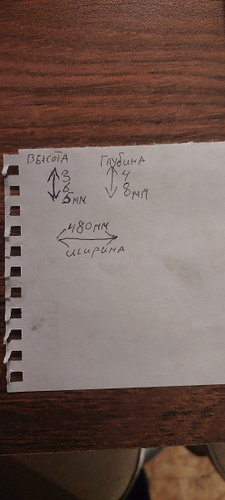 ВЫСОТА ГЛУБИНА
3 4
6 8мм
5мм
480мм
ШИРИНА